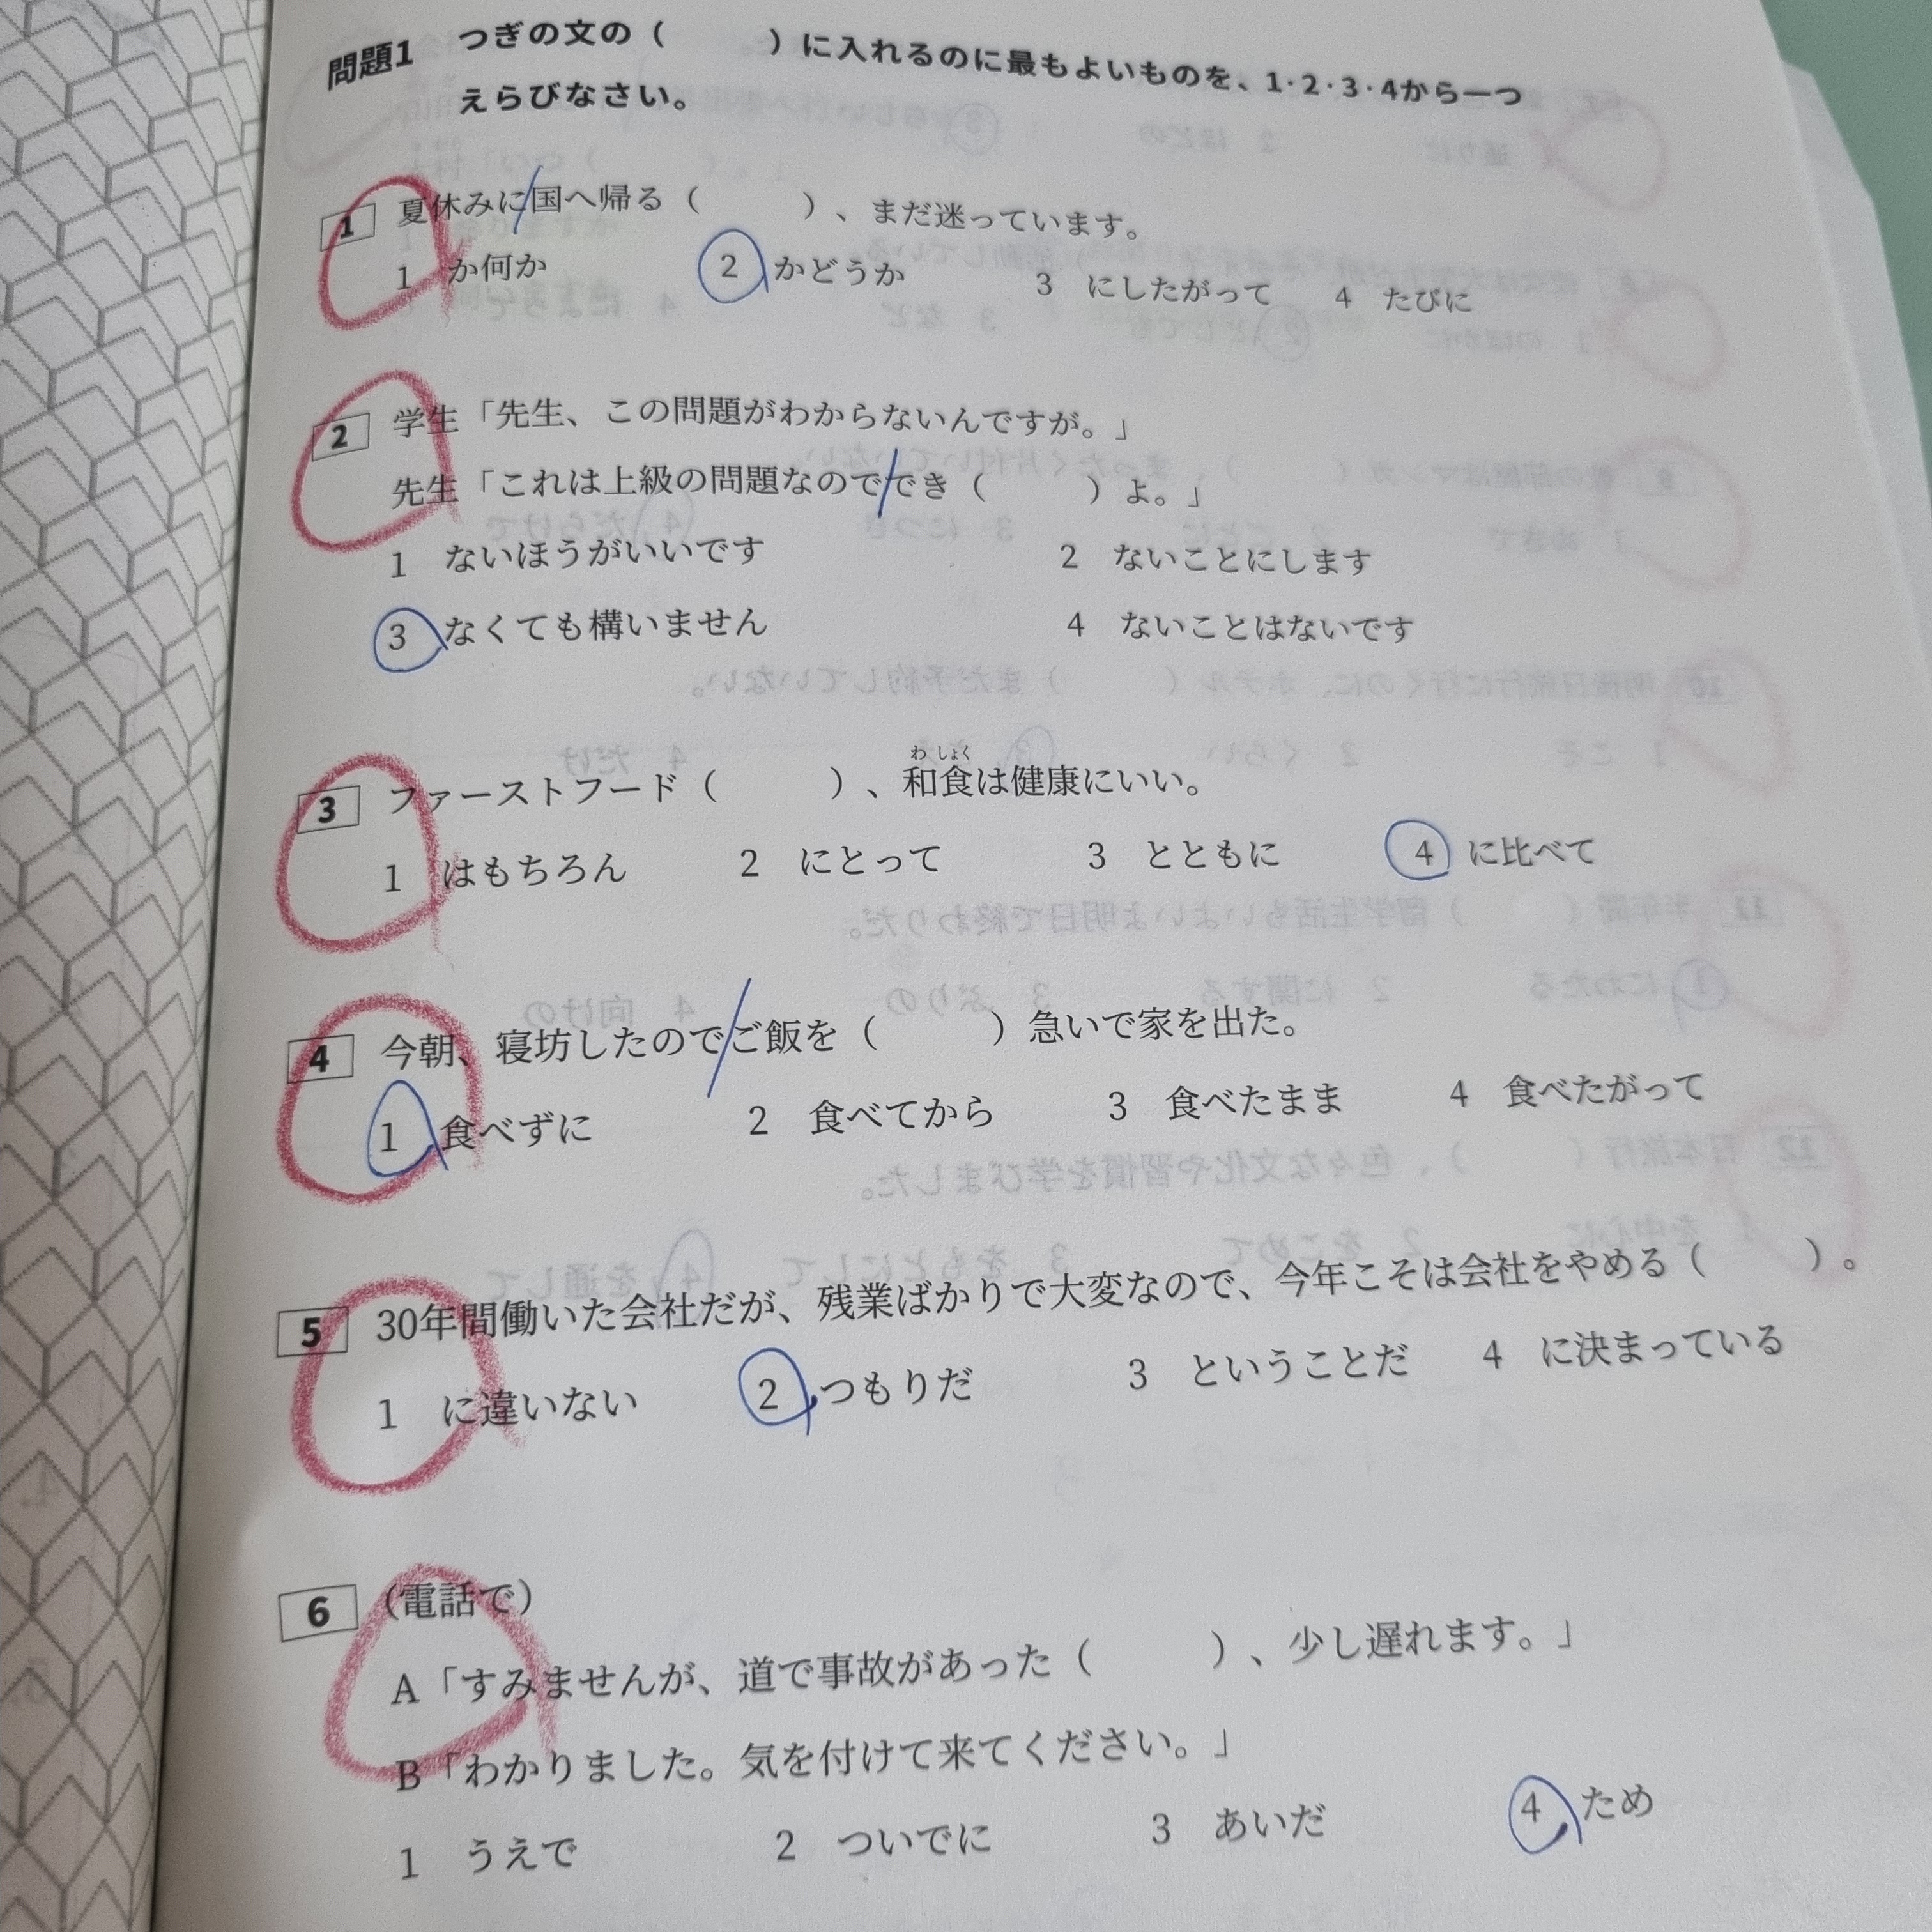 問題1 つぎの文の（　　　）に入れるのに最もよいものを、1・2・3・4から一つ
えらびなさい。
1 夏休みに国へ帰る（　　　）、まだ迷っています。
1 か何か 2 かどうか 3 にしたがって 4 たびに
2 学生「先生、この問題がわからないんですが。」
先生「これは上級の問題なのででき（　　　）よ。」
1 ないほうがいいです 2 ないことにします
3 なくても構いません 4 ないことはないです
わ しょく
3 ファーストフード（　　　）、和食は健康にいい。
1 はもちろん 2 にとって 3 とともに 4 に比べて
4 今朝、寝坊したのでご飯を（　　　）急いで家を出た。
1 食べずに 2 食べてから 3 食べたまま 4 食べたがって
5 30年間働いた会社だが、残業ばかりで大変なので、今年こそは会社をやめる（　　　）。
1 に違いない 2 つもりだ 3 ということだ 4 に決まっている
6 （電話で）
A「すみませんが、道で事故があった（　　　）、少し遅れます。」
B「わかりました。気を付けて来てください。」
1 うえで 2 ついでに 3 あいだ 4 ため